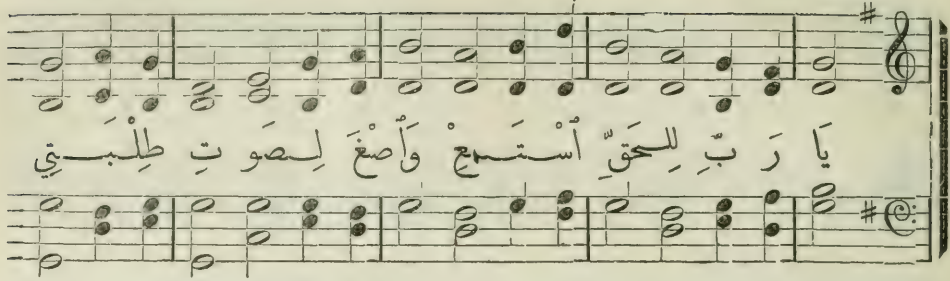 يَا رَ بِّ لِلحَقِّ ٱسْتَمِعْ وَأَصْغَ لِصَو تِ طِلْبَتِي